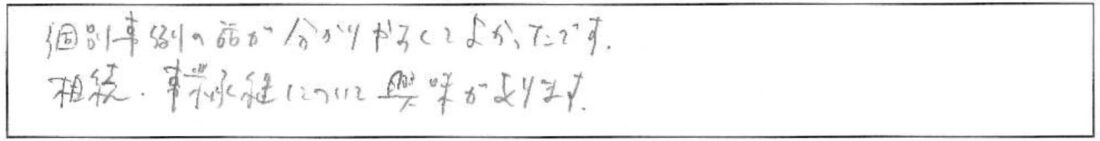 個別事例の話が分かりやすくてよかったです.
相続・事業承継について興味があります.